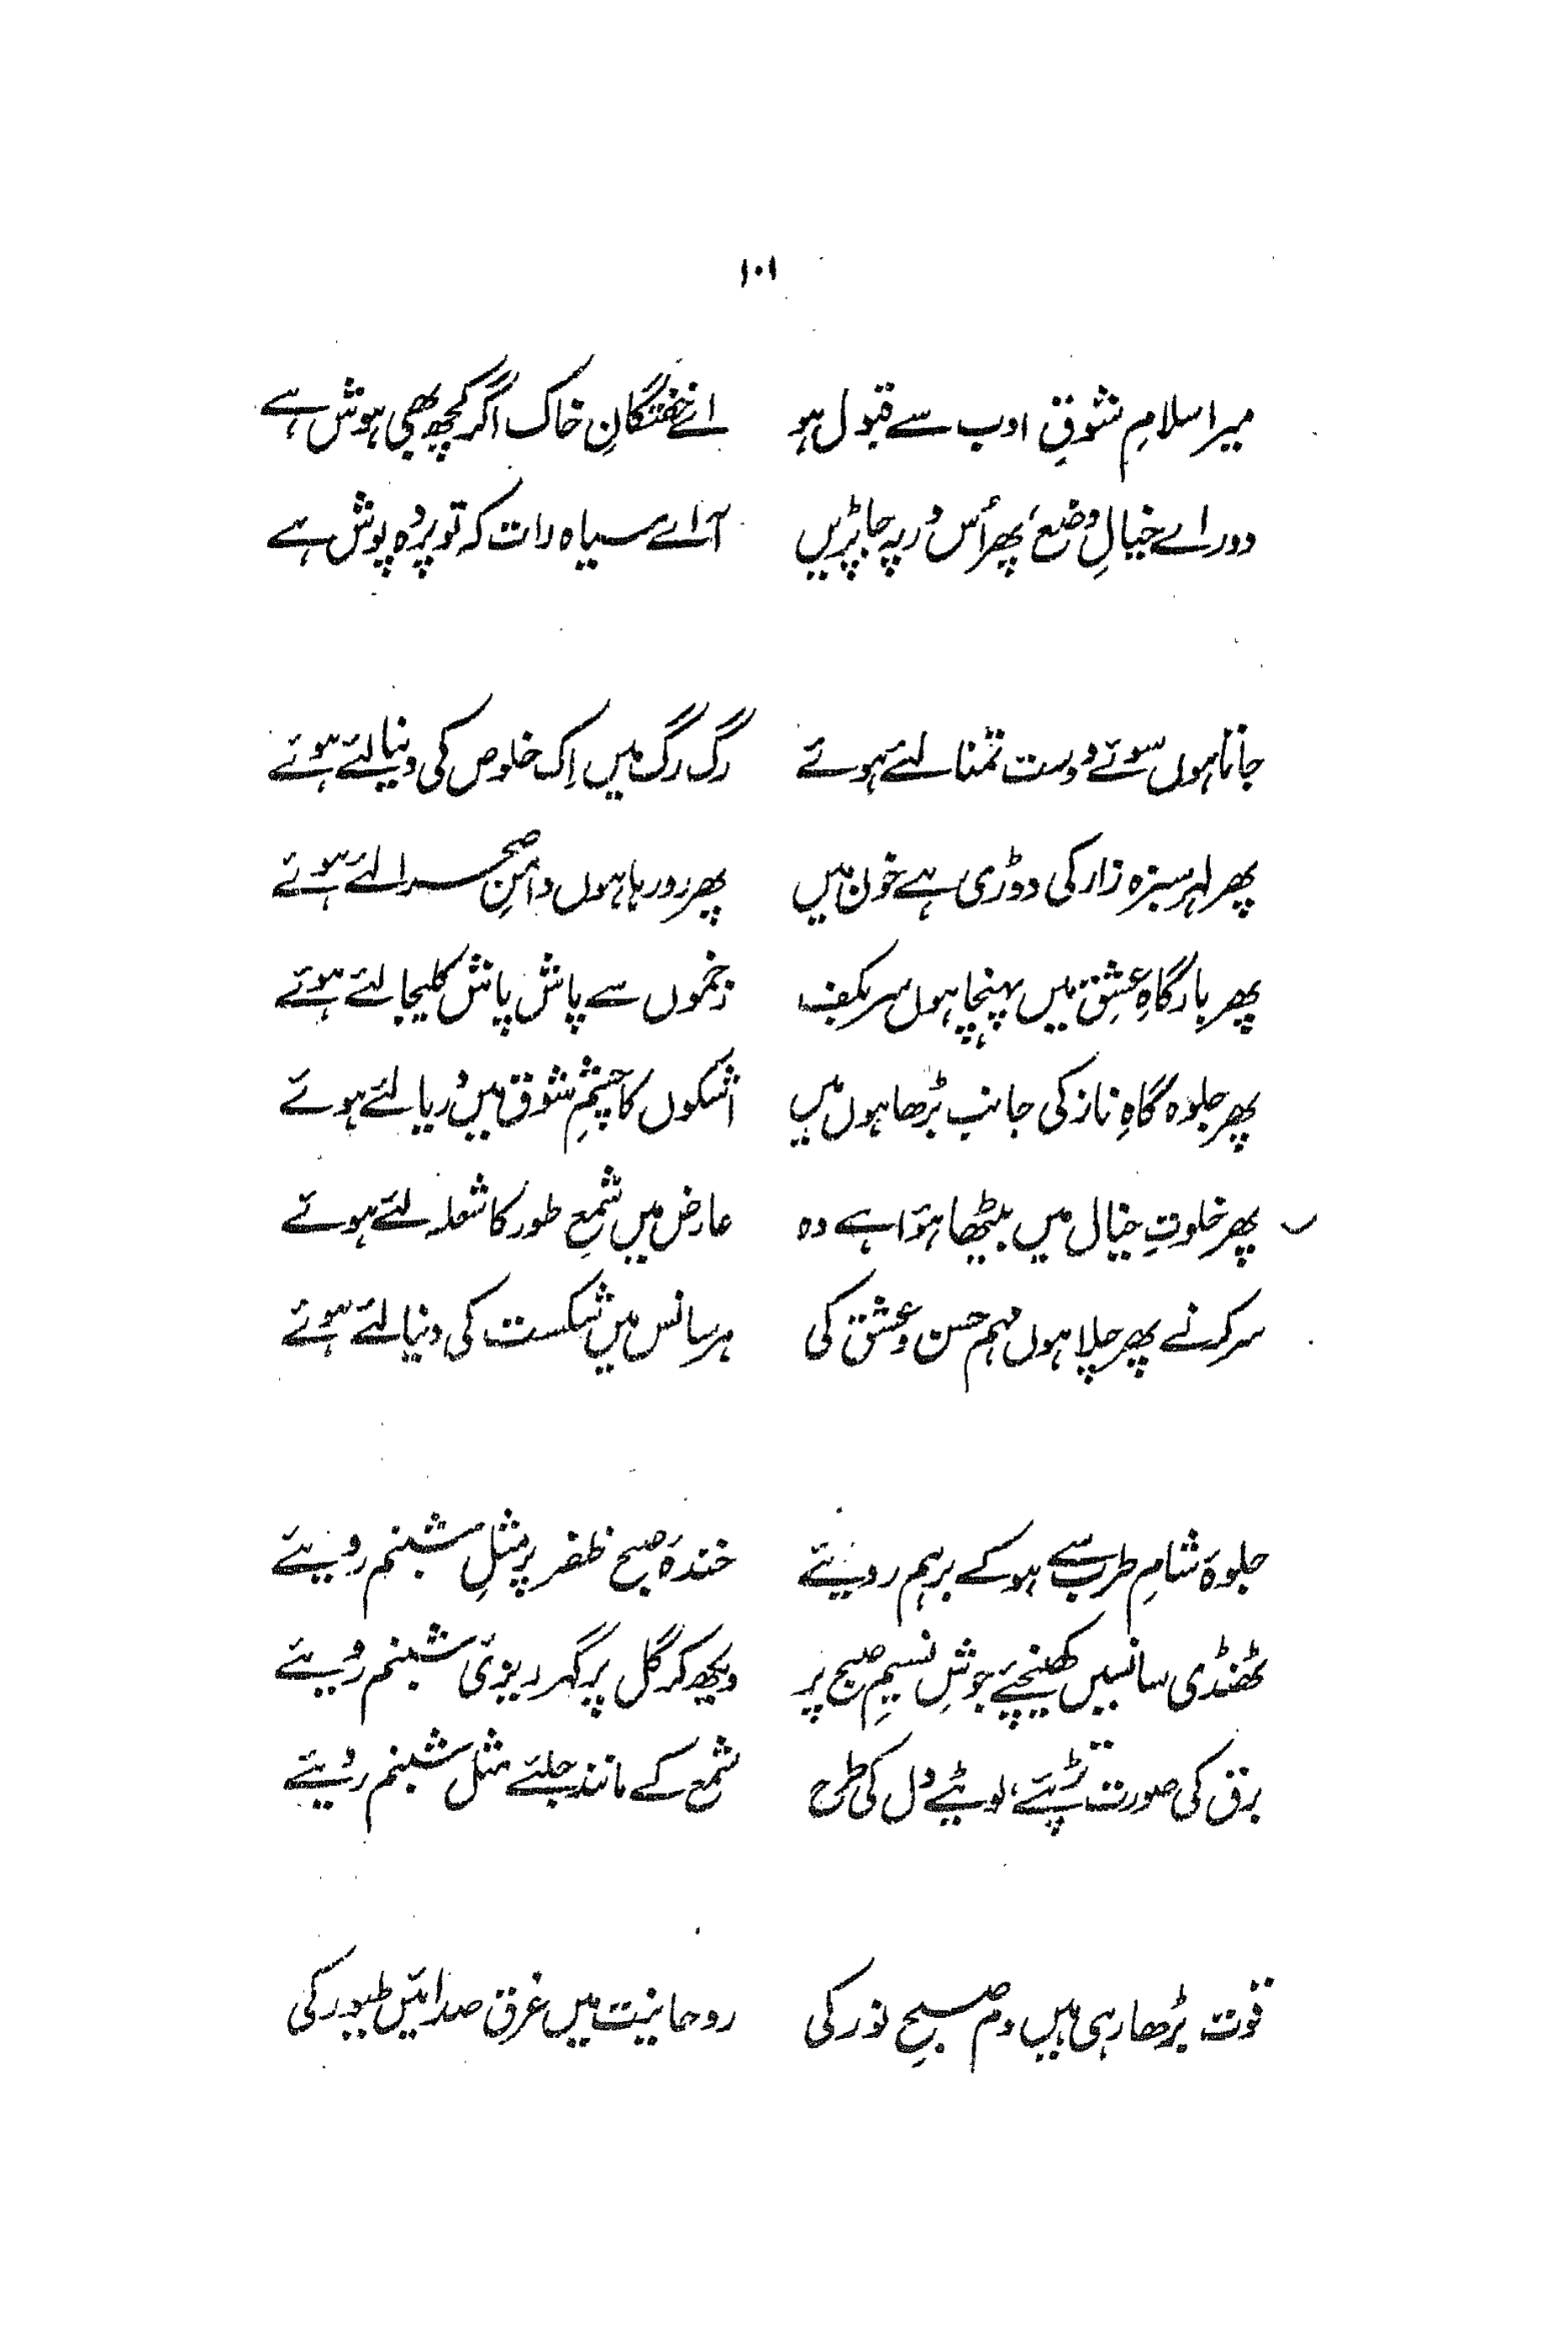 ۱۰۱
میرا سلامِ شوقِ ادب سے قبول ہو اے خفتگانِ خاک اگر کچھ بھی ہوش ہے
دور اے خیالِ وضع، پھر اُس در پہ جا پڑیں آ اے سیاہ رات کہ تو پردہ پوش ہے
جاتا ہوں سوئے دوست تمنا لئے ہوئے رگ رگ میں اِک خلوص کی دنیا لئے ہوئے
پھر لہر سبزہ زار کی دوڑی ہے خون میں پھر رو رہا ہوں دامنِ صحرا لئے ہوئے
پھر بارگاہِ عشق میں پہنچا ہوں سر بکف زخموں سے پاش پاش کلیجا لئے ہوئے
پھر جلوہ گاہِ ناز کی جانب بڑھا ہوں میں اشکوں کا چشمِ شوق میں دریا لئے ہوئے
پھر خلوتِ خیال میں بیٹھا ہؤا ہے وہ عارض میں شمعِ طور کا شعلہ لئے ہوئے
سر کرنے پھر چلا ہوں مہم حسن و عشق کی ہر سانس میں شکست کی دنیا لئے ہوئے
جلوۂ شامِ طرب سے ہو کے برہم رویئے خندۂ صبح ظفر پر مثلِ شبنم رویئے
ٹھنڈی سانسیں کھینچئے جوشِ نسیمِ صبح پر دیکھ کر گل پر گہر ریزیٔ شبنم رویئے
برق کی صورت تڑپئے، لوٹیے دل کی طرح شمع کے مانند جلئے مثل شبنم رویئے
قوت بڑھا رہی ہیں دم صبحِ نور کی روحانیت میں غرق صدائیں طیور کی